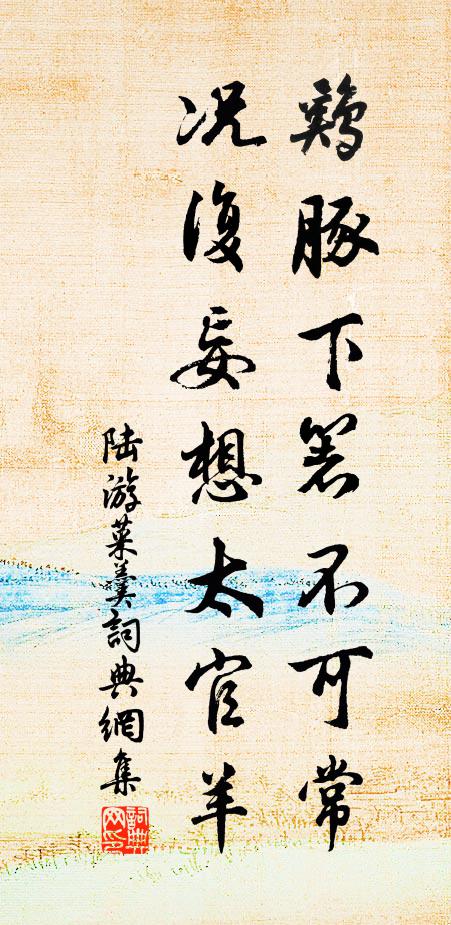 鷄豚下箸不可常
况復妄想太官羊
陆游菜羹詞典網集
詞典网印